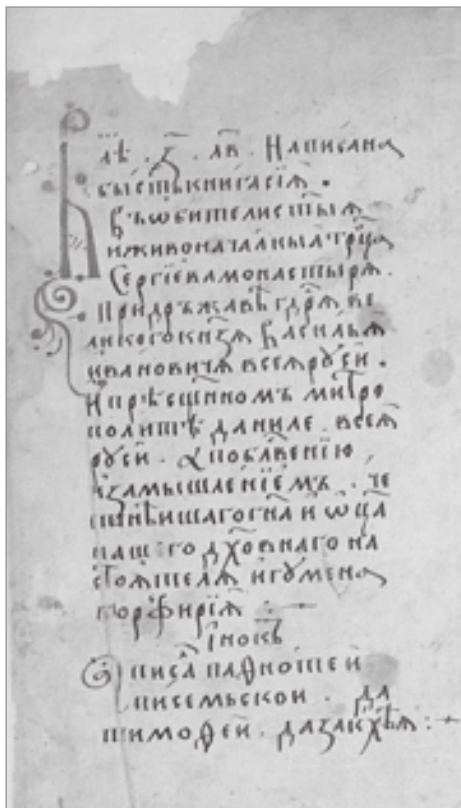 В лѣ . ҂з҃ . л҃в . Написана
бысть книга сїѧ .
Въ ѡбители ст҃ыѧ
и живоначалныѧ трⷪ҇ца
Сергїева монастырѧ .
При дръжавѣ гдⷭ҇рѧ ве
ликого кн҃ѕѧ Васильѧ
ивановичѧ всеѧ рѹсїи .
И прѣсщ҃нномъ митро
политѣ даниле . всеѧ
рѹсїи . А по блⷭ҇венїю ,
и замышленїемъ . че
стнѣишаго гн҃а и ѡц҃а
нашего дх҃овнаго на
стоѧтелѧ игумена
порфирїѧ :
Їнокъ
писа пафнотей
писемьской . да
тимофей . да закхѣѧ :